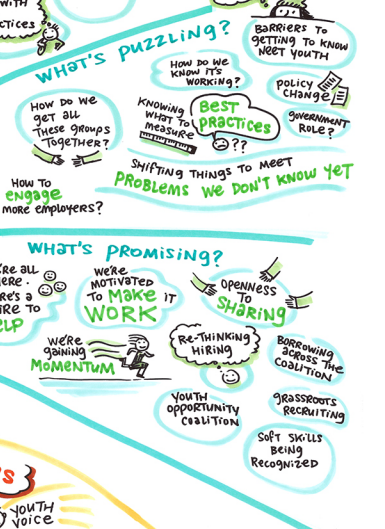 WITH
CTICES
WHAT'S PUZZLING?
BARRIERS TO
GETTING TO KNOW
NEET YOUTH
HOW DO WE
KNOW IT'S
WORKING?
POLICY
CHANGE
HOW DO WE
get ALL
THESE GROUPS
TOGETHER?
KNOWING
WHAT TO
MEASURE
BEST
PRACTICES
??
government
ROLE?
SHIFTING THINGS TO MEET
PROBLEMS WE DON'T KNOW YET
HOW TO
engage
MORE EMPLOYERS?
WHAT'S PROMISING?
'RE ALL
HERE.
RE'S A
IRE TO
ELP
WE'RE
MOTIVATED
TO MAKE IT
WORK
OPENNESS
TO
SHARING
WE'RE
gaining
MOMENTUM
RE-THINKING
HIRING
BORROWING
ACROSS THE
COALITION
YOUTH
OPPORTUNITY
COALITION
GRASSROOTS
RECRUITING
SOFT SKILLS
BEING
RECOGNIZED
S
YOUTH
VOICE